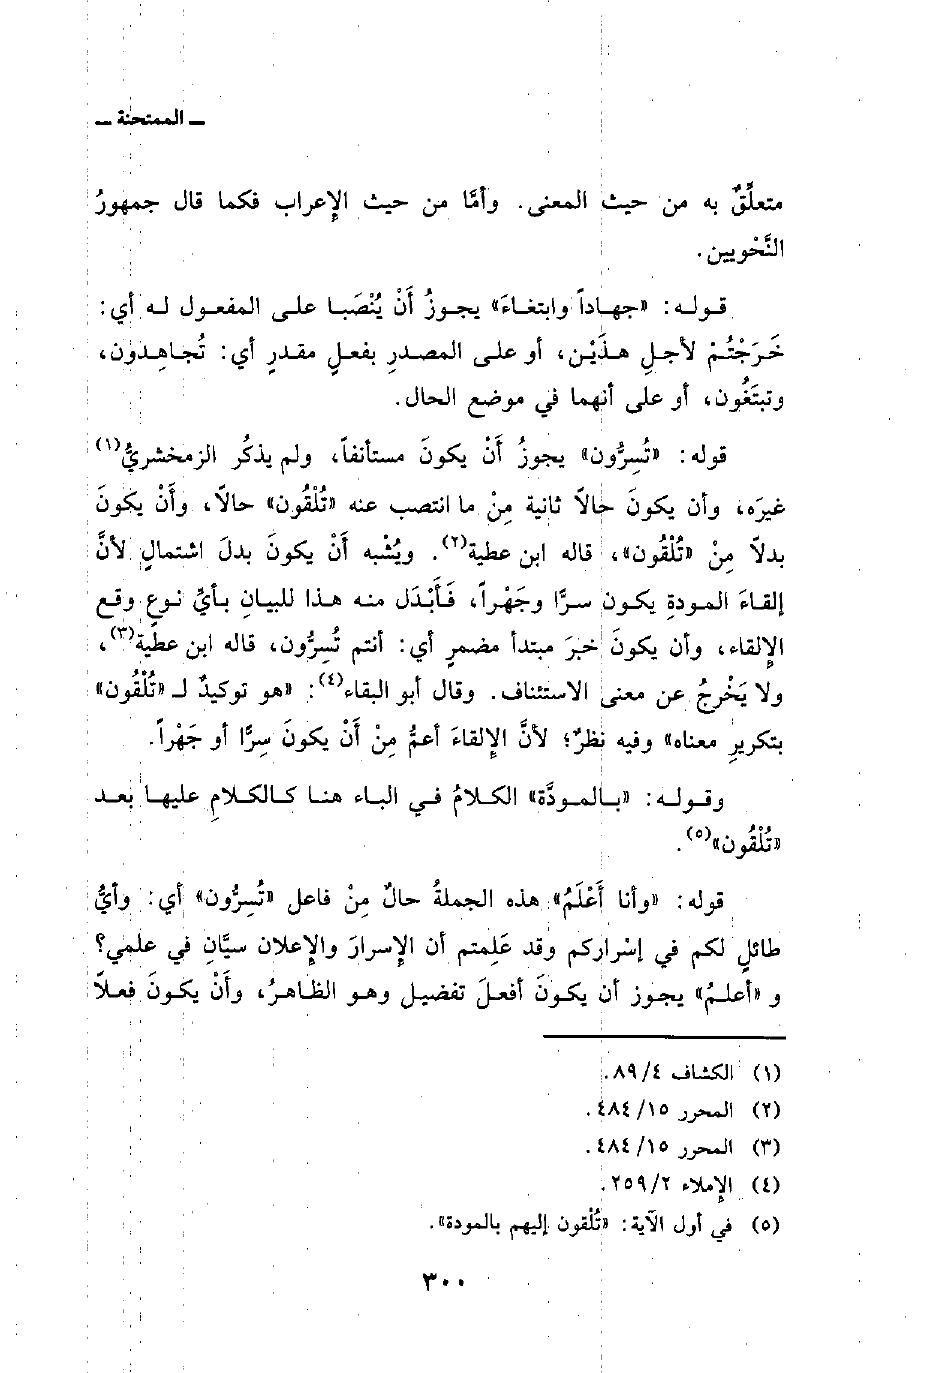 ــ الممتحنة ــ
متعلِّقٌ به من حيث المعنى. وأمَّا من حيث الإِعراب فكما قال جمهورُ
النَّحْويين.
قوله: «جهاداً وابتغاءَ» يجوزُ أَنْ يُنْصَبا على المفعول له أي:
خَرَجْتُمْ لأجلِ هذَيْن، أو على المصدرِ بفعلٍ مقدرٍ أي: تُجاهِدون،
وتبتَغُون، أو على أنهما في موضع الحال.
قوله: «تُسِرُّون» يجوزُ أَنْ يكونَ مستأنفاً، ولم يذكُر الزمخشريُّ(١)
غيرَه، وأن يكونَ حالاً ثانية مِنْ ما انتصب عنه «تُلْقُون» حالاً، وأَنْ يكونَ
بدلاً مِنْ «تُلْقُون»، قاله ابن عطية(٢). ويُشْبه أَنْ يكونَ بدلَ اشتمالٍ لأنَّ
إلقاءَ المودةِ يكون سرَّاً وجَهْراً، فَأَبْدَل منه هذا للبيانِ بأيِّ نوعٍ وقع
الإِلقاء، وأن يكونَ خبرَ مبتدأ مضمرٍ أي: أنتم تُسِرُّون، قاله ابن عطية(٣)،
ولا يَخْرجُ عن معنى الاستئناف. وقال أبو البقاء(٤): «هو توكيدٌ لـ «تُلْقُون»
بتكريرِ معناه» وفيه نظرٌ؛ لأنَّ الإِلقاءَ أعمُّ مِنْ أَنْ يكونَ سِرَّا أو جَهْراً.
وقوله: «بالمودَّة» الكلامُ في الباء هنا كالكلامِ عليها بعد
«تُلْقُون»(٥).
قوله: «وأنا أَعْلَمُ» هذه الجملةُ حالٌ مِنْ فاعل «تُسِرُّون» أي: وأيُّ
طائلٍ لكم في إسْراركم وقد عَلِمتم أن الإِسرارَ والإِعلان سيَّانِ في علمي؟
و «أعلمُ» يجوز أن يكونَ أفعلَ تفضيل وهو الظاهرُ، وأَنْ يكونَ فعلاً
(١) الكشاف ٨٩/٤.
(٢) المحرر ٤٨٤/١٥.
(٣) المحرر ٤٨٤/١٥.
(٤) الإِملاء ٢٥٩/٢.
(٥) في أول الآية: «تُلْقون إليهم بالمودة».
٣٠٠